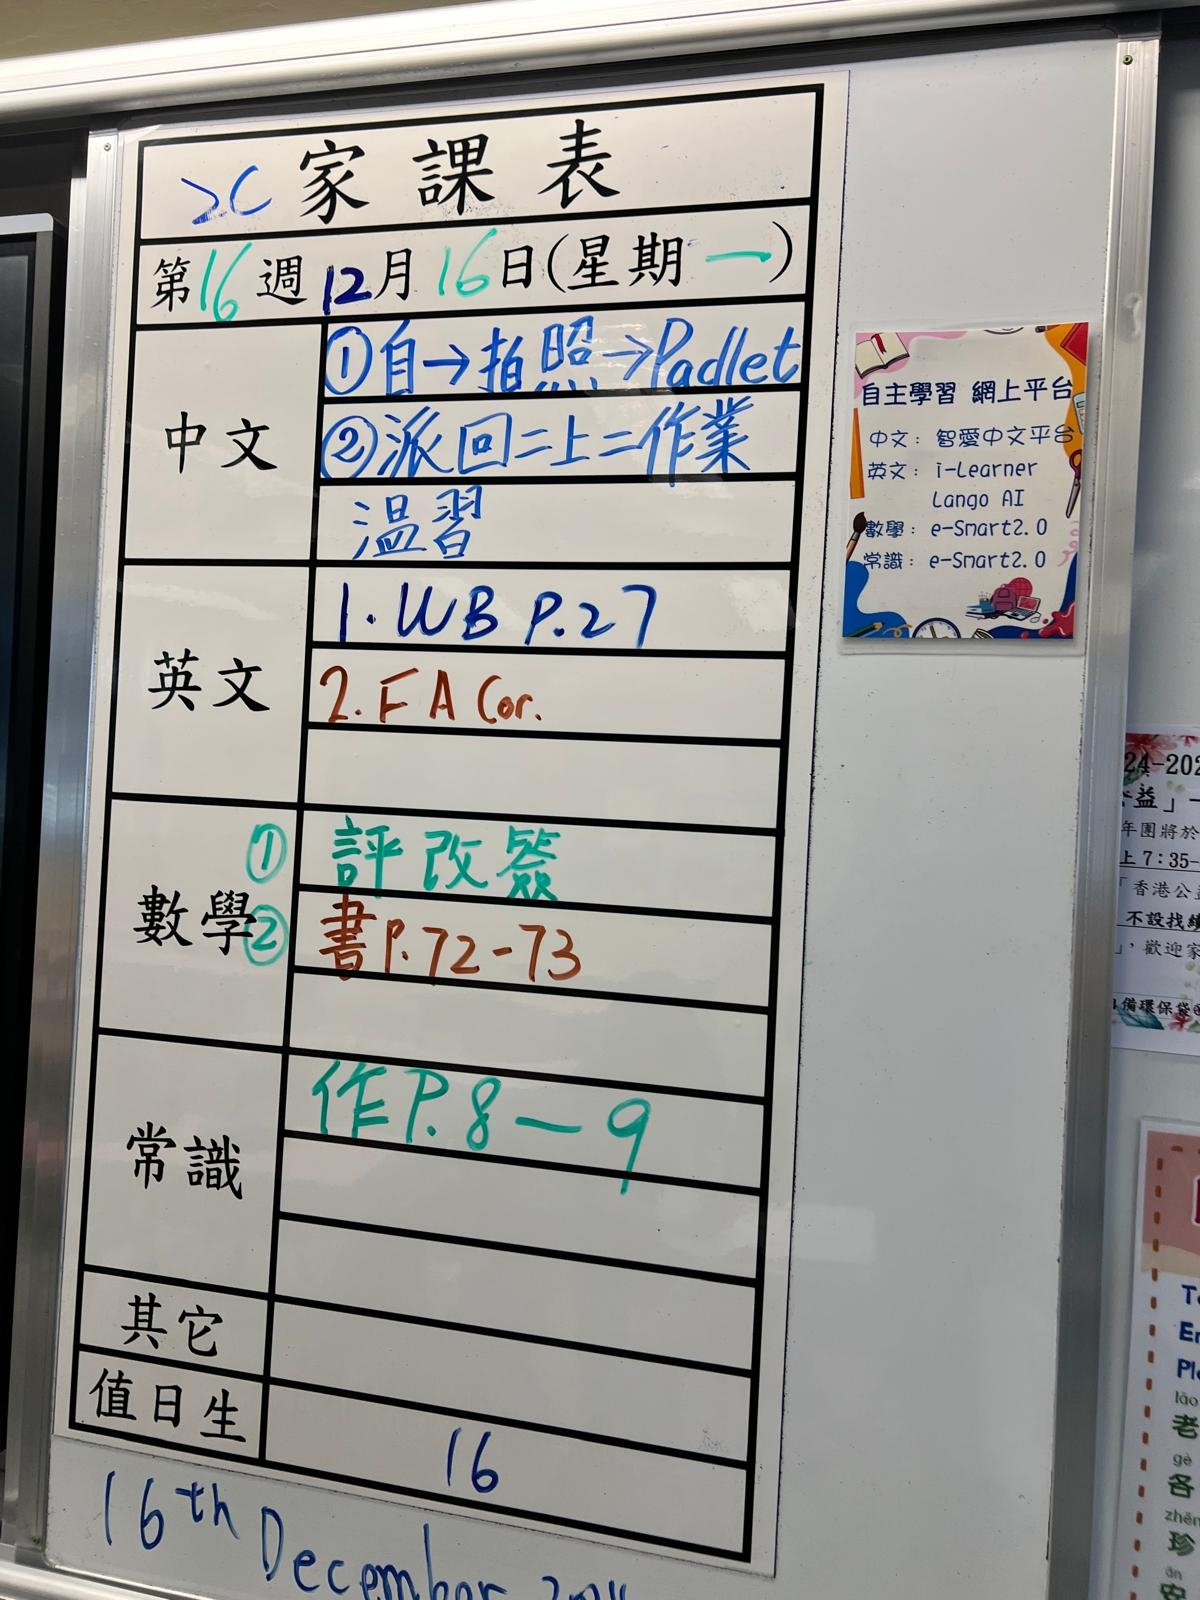 2C 家課表
第16週12月16日(星期一)
中文
①自→拍照→Padlet
②派回二上二作業
溫習
英文
1. WB P.27
2. FA Cor.
數學
① 評改簽
② 書P.72-73
常識
作P.8-9
其它
值日生
16
16th December
自主學習 網上平台
中文: 智愛中文平台
英文: i-Learner
Lango AI
數學: e-Smart2.0
常識: e-Smart2.0
24-202
益」
年團將於
上7:35-
「香港公
不設找
」,歡迎家
備環保袋
lǎo
老
gè
各
zhēn
珍
ān
安